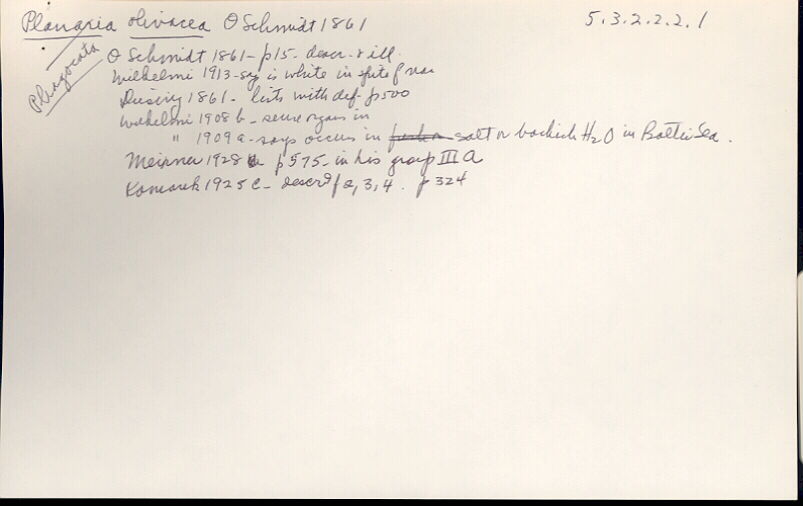 Planaria olivacea O Schmidt 1861
5.3.2.2.2.1
Phagocata
O Schmidt 1861 - p15. descr. & ill.
Wilhelmi 1913 - say is white in spite of name
Diesing 1861 - lists with def p500
Wilhelmi 1908 b - sense organs in
" 1909 a - says occurs in salt or backish H2O in Baltic Sea.
Meixner 1928 p 575 - in his group III A
Komarek 1925 c - descr f 2, 3, 4. p 324